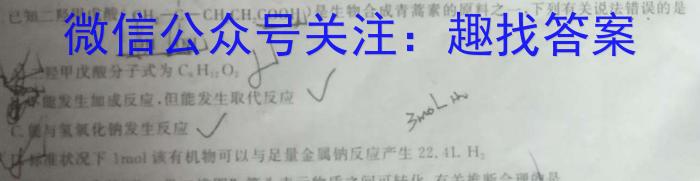 已知二羟甲戊酸( CH CH₂CH₂COOH )是生物合成青蒿素的原料之一,下列有关说法错误的是
微信公众号关注：趣找答案
羟甲戊酸分子式为C₆H₁₂O₂
能发生加成反应,但能发生取代反应
C.能与氢氧化钠发生反应
3mol H₂
标准状况下1mol该有机物可以与足量金属钠反应产生22.4L H₂
表示物质之间可转化,有关推断合理的是